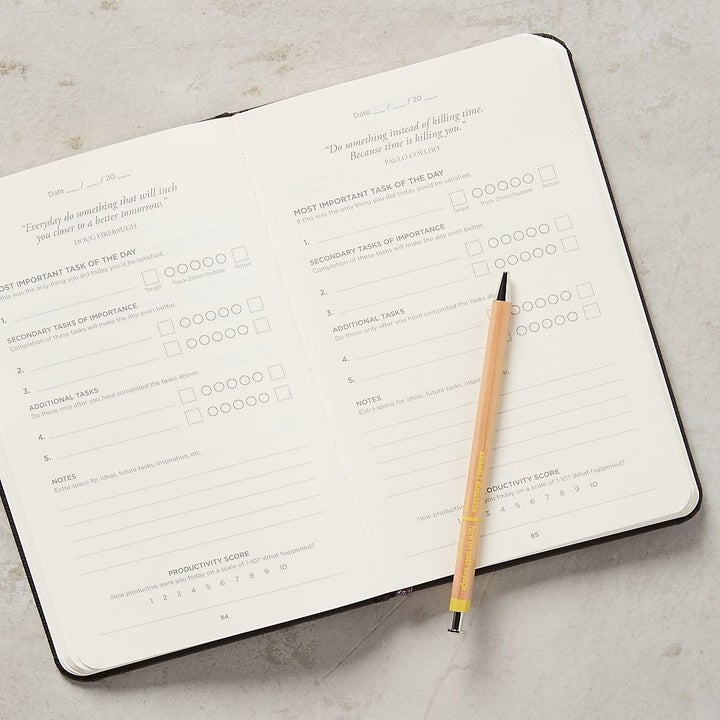 Date ___ / ___ / 20 ___
"Everyday do something that will inch
you closer to a better tomorrow."
DOUG FIREBAUGH
MOST IMPORTANT TASK OF THE DAY
If this was the only thing you did today you'd be satisfied.
1.
Target Track 25min/bubble Actual
SECONDARY TASKS OF IMPORTANCE
Completion of these tasks will make the day even better.
2.
3.
ADDITIONAL TASKS
Do these only after you have completed the tasks above.
4.
5.
NOTES
Extra space for ideas, future tasks, inspiration, etc.
PRODUCTIVITY SCORE
How productive were you today on a scale of 1-10? What happened?
1 2 3 4 5 6 7 8 9 10
84
Date ___ / ___ / 20 ___
"Do something instead of killing time.
Because time is killing you."
PAULO COELHO
MOST IMPORTANT TASK OF THE DAY
If this was the only thing you did today you'd be satisfied.
1.
Target Track 25min/bubble Actual
SECONDARY TASKS OF IMPORTANCE
Completion of these tasks will make the day even better.
2.
3.
ADDITIONAL TASKS
Do these only after you have completed the tasks
4.
5.
NOTES
Extra space for ideas, future tasks, inspiration,
ODUCTIVITY SCORE
How productive you today on a scale of 1-10? What happened?
1 3 4 5 6 7 8 9 10
85